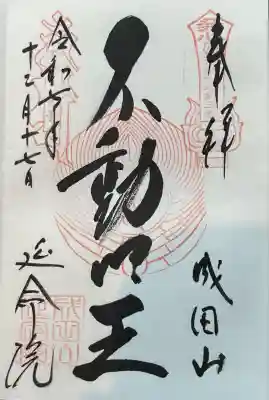 奉拝
成田山
不動明王
令和六年
十二月十七日
延命院